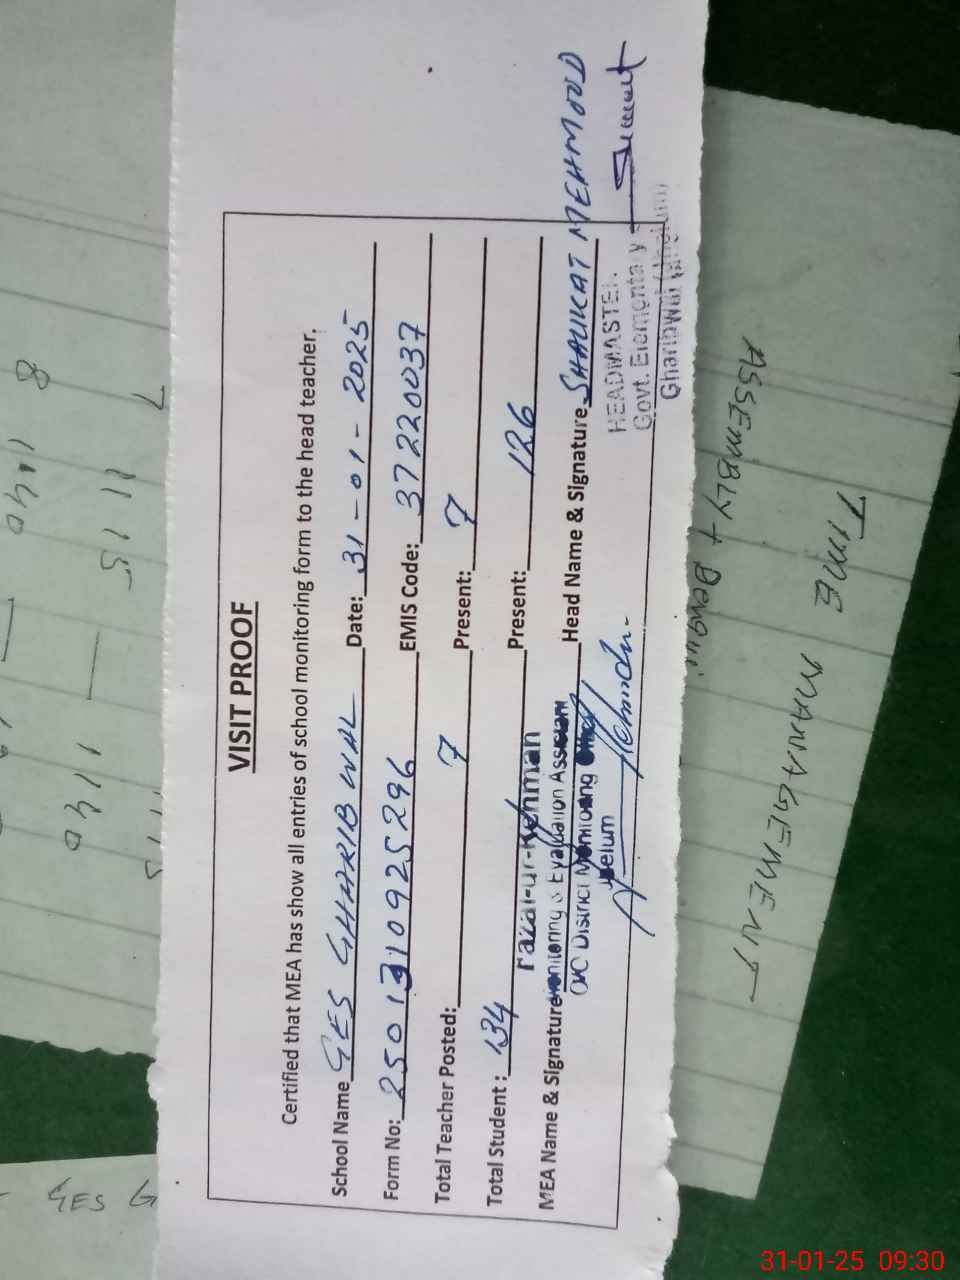 VISIT PROOF
Certified that MEA has show all entries of school monitoring form to the head teacher.
School Name GES GHARIB WAL Date: 31-01-2025
Form No: 2501310925296 EMIS Code: 37220037
Total Teacher Posted: 7 Present: 7
Total Student: 134 Present: 126
MEA Name & Signature Head Name & Signature SHAUKAT MEHMOOD
Monitoring & Evaluation
O/O District Monitoring
HEADMASTER
Govt. Elementary
Gharibwal
TIME MANAGEMENT
ASSEMBLY + Dengui
7 11 15
8 1140
1140
GES G
31-01-25 09:30